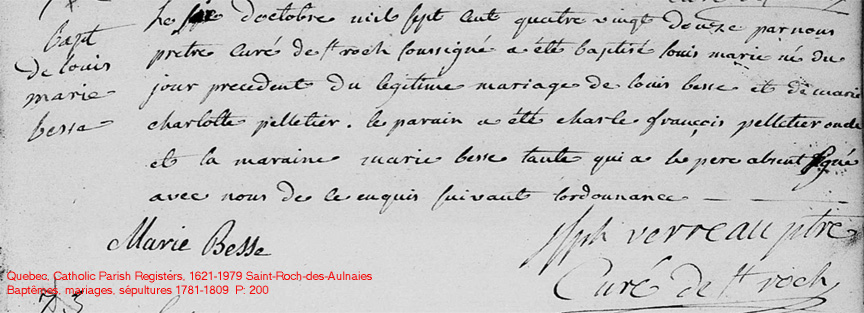 bapt
de louis
marie
besse
Le six d'octobre mil sept cent quatre vingt douze par nous
pretre curé de St roch soussigné a été baptisé louis marie né du
jour precedent du legitime mariage de louis besse et de marie
charlotte pelletier. le parain a été charle françois pelletier oncle
et la maraine marie besse tante qui a le pere absent signé
avec nous de ce enquis suivant l'ordonnance
Marie Besse
Jsph verreau ptre
Curé de St roch
Quebec, Catholic Parish Registers, 1621-1979 Saint-Roch-des-Aulnaies
Baptêmes, mariages, sépultures 1781-1809 P: 200